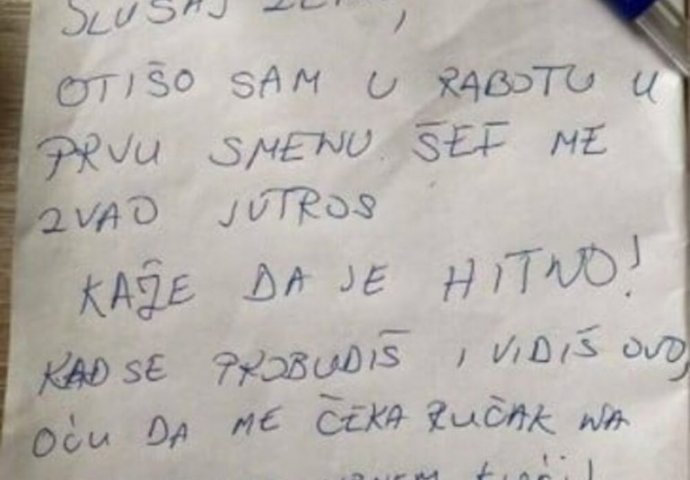 SLUŠAJ
OTIŠO SAM U RABOTU U
PRVU SMENU. ŠEF ME
ZVAO JUTROS
KAŽE DA JE HITNO!
KAD SE PROBUDIŠ I VIDIŠ OVO,
OĆU DA ME ČEKA RUČAK NA